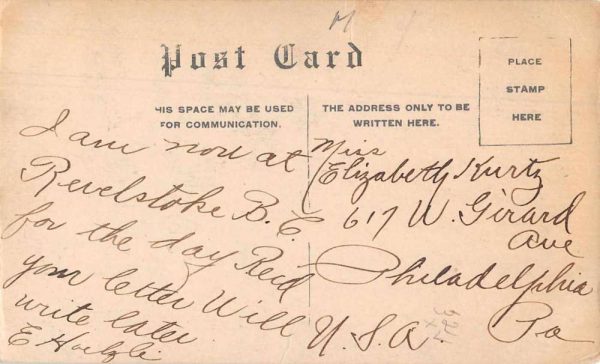 Post Card
THIS SPACE MAY BE USED
FOR COMMUNICATION.
THE ADDRESS ONLY TO BE
WRITTEN HERE.
PLACE
STAMP
HERE
I am now at
Revelstoke B.C.
for the day Recd
your letter Will
write later
E
Miss
Elizabeth Kurtz
617 W. Girard
Ave
Philadelphia
Pa
U.S.A